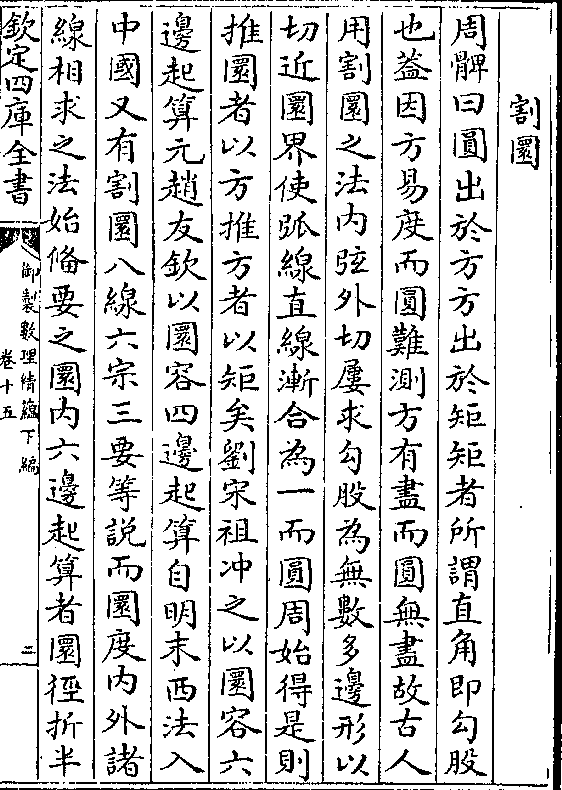 割圜
周髀曰圓出於方方出於矩矩者所謂直角即勾股
也葢因方易度而圓難測方有盡而圓無盡故古人
用割圜之法内弦外切屢求勾股為無數多邊形以
切近圜界使弧線直線漸合為一而圓周始得是則
推圜者以方推方者以矩矣劉宋祖沖之以圜容六
邊起算元趙友欽以圜容四邊起算自明末西法入
中國又有割圜八線六宗三要等説而圜度内外諸
線相求之法始俻要之圜内六邊起算者圜徑折半
欽定四庫全書
御製數理精藴下編
卷十五
二